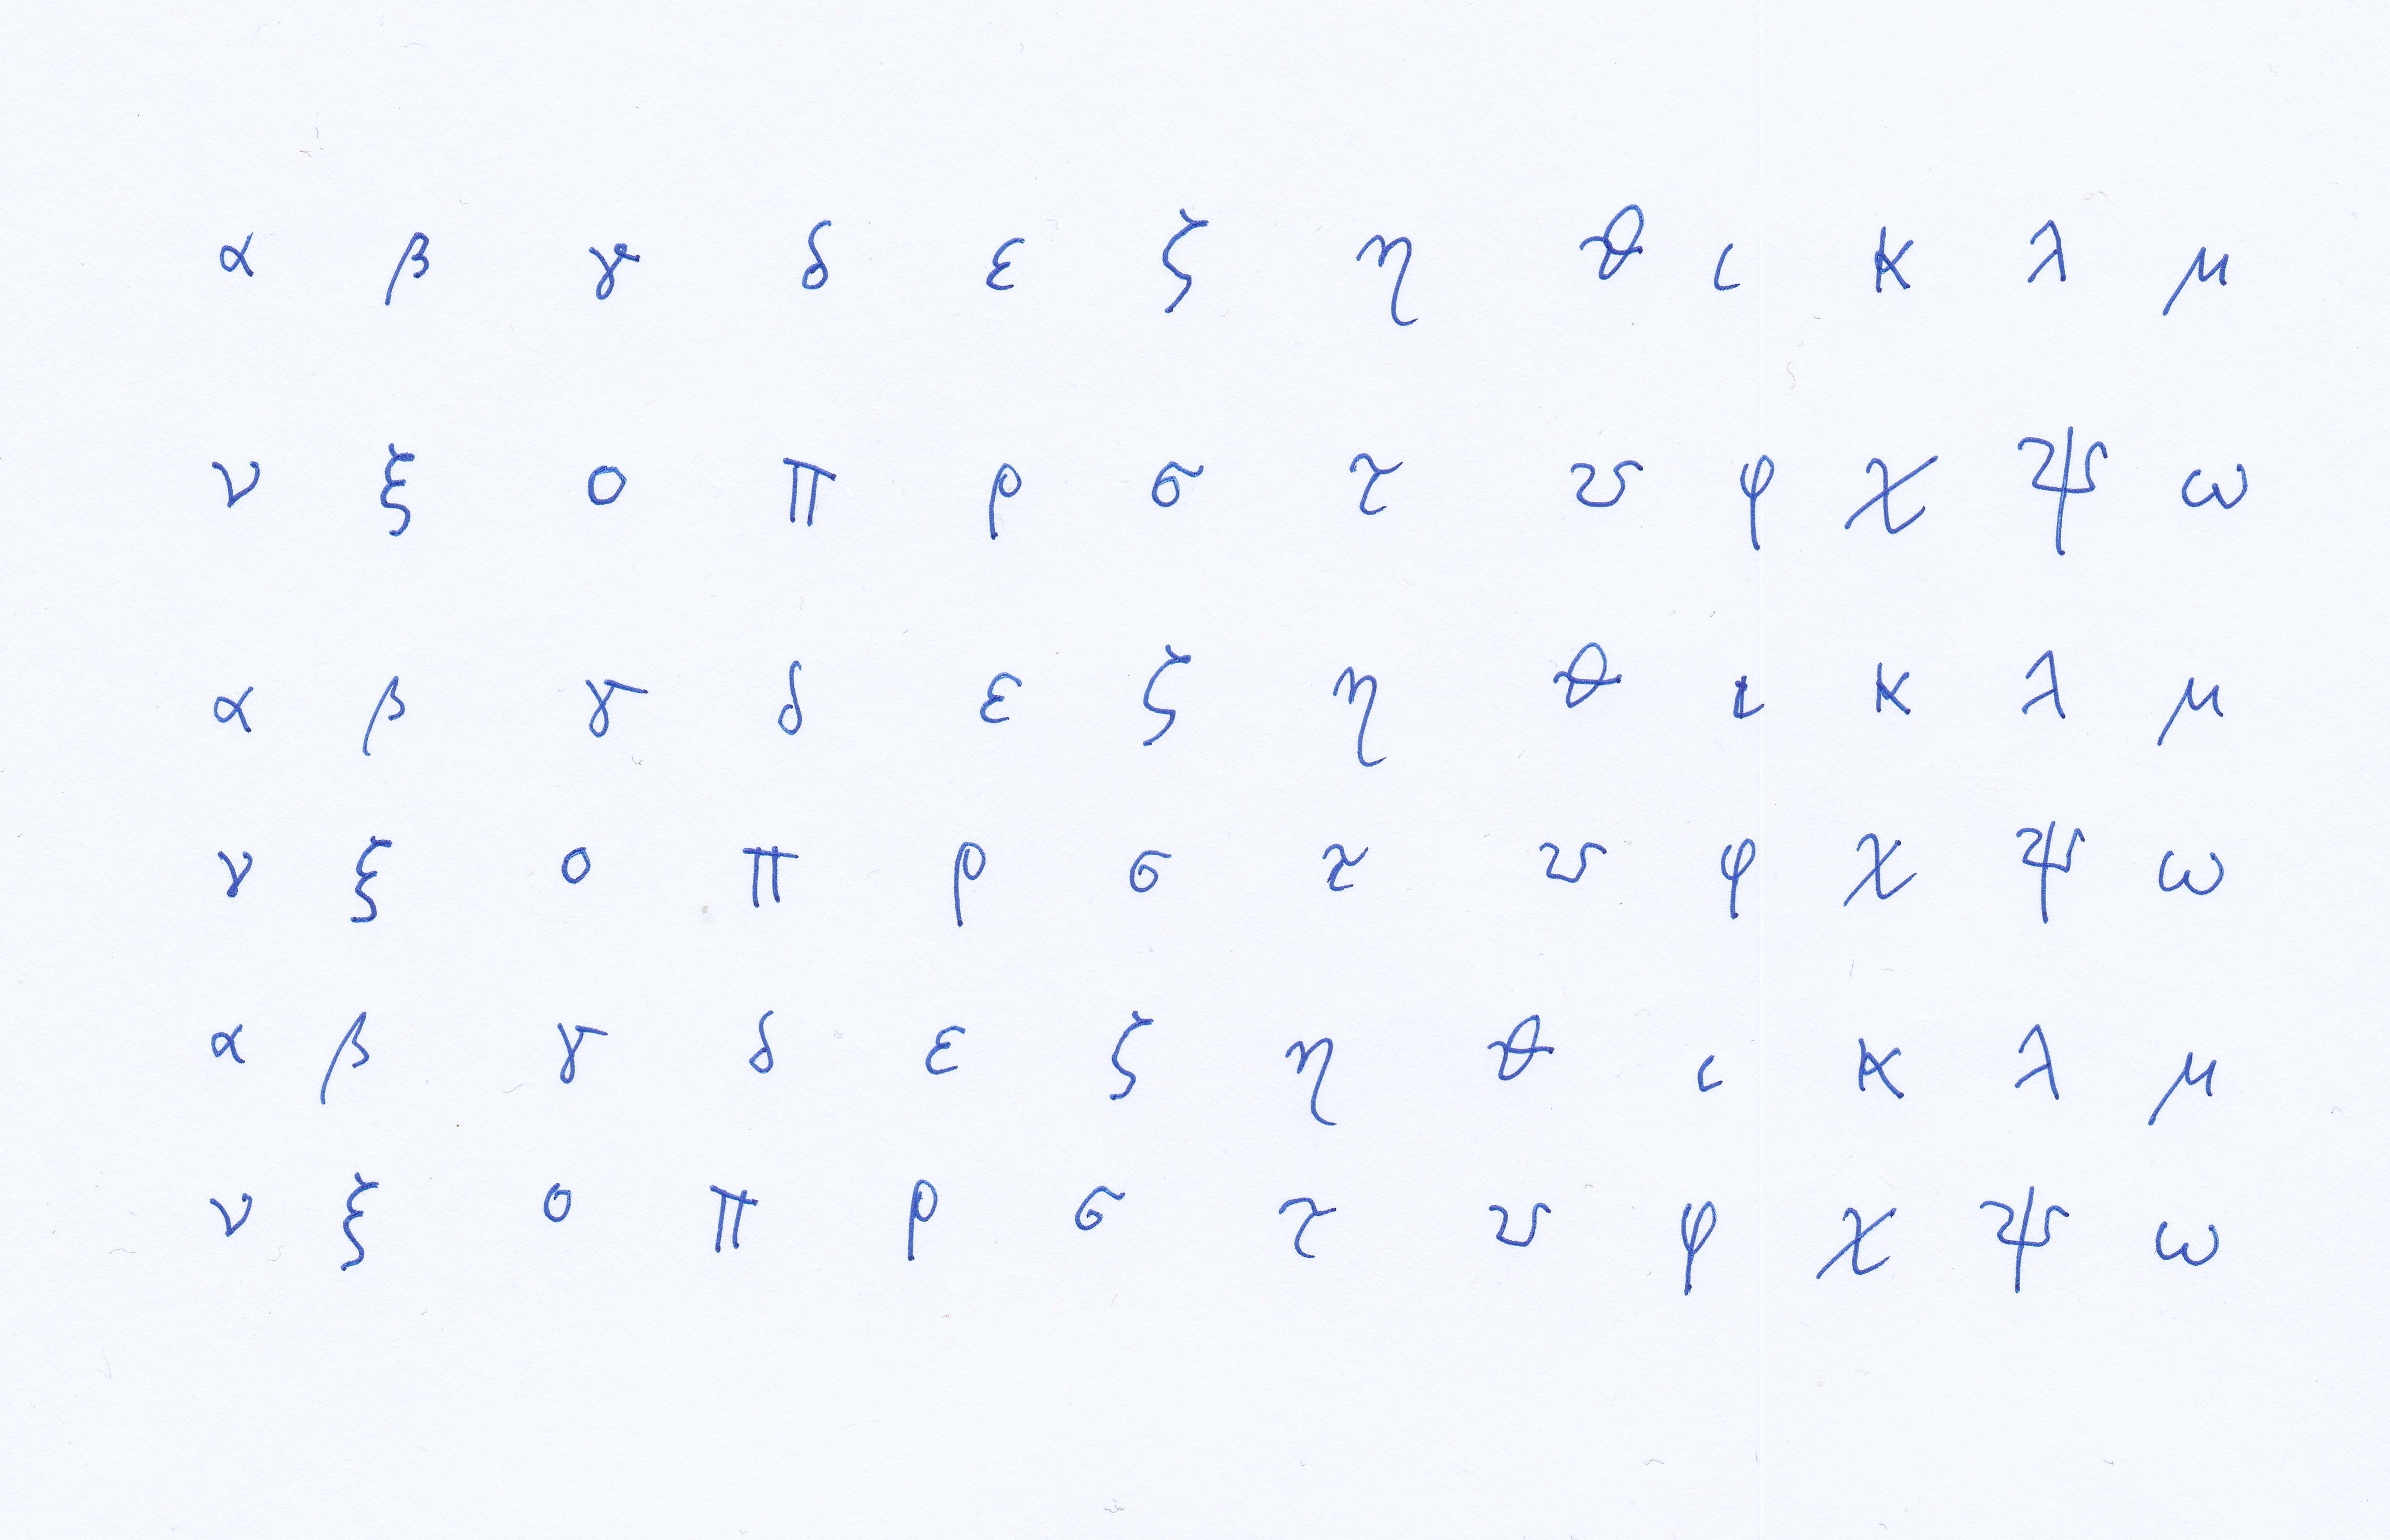 α β γ δ ε ζ η ϑ ι κ λ μ
ν ξ ο π ρ σ τ υ φ χ ψ ω
α β γ δ ε ζ η ϑ ι κ λ μ
ν ξ ο π ρ σ τ υ φ χ ψ ω
α β γ δ ε ζ η ϑ ι κ λ μ
ν ξ ο π ρ σ τ υ φ χ ψ ω